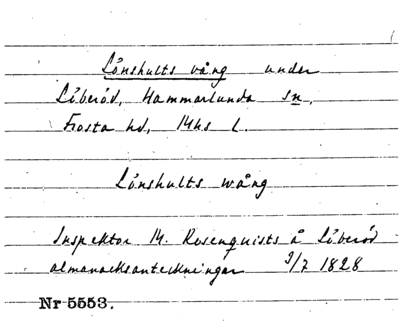 Lönshults vång under
Löberöd, Hammarlunda sn,
Frosta hd, Mhs l.
Lönshults wång
Inspektor M. Rosenquists å Löberöd
almanacksanteckningar 9/7 1828
Nr 5553.